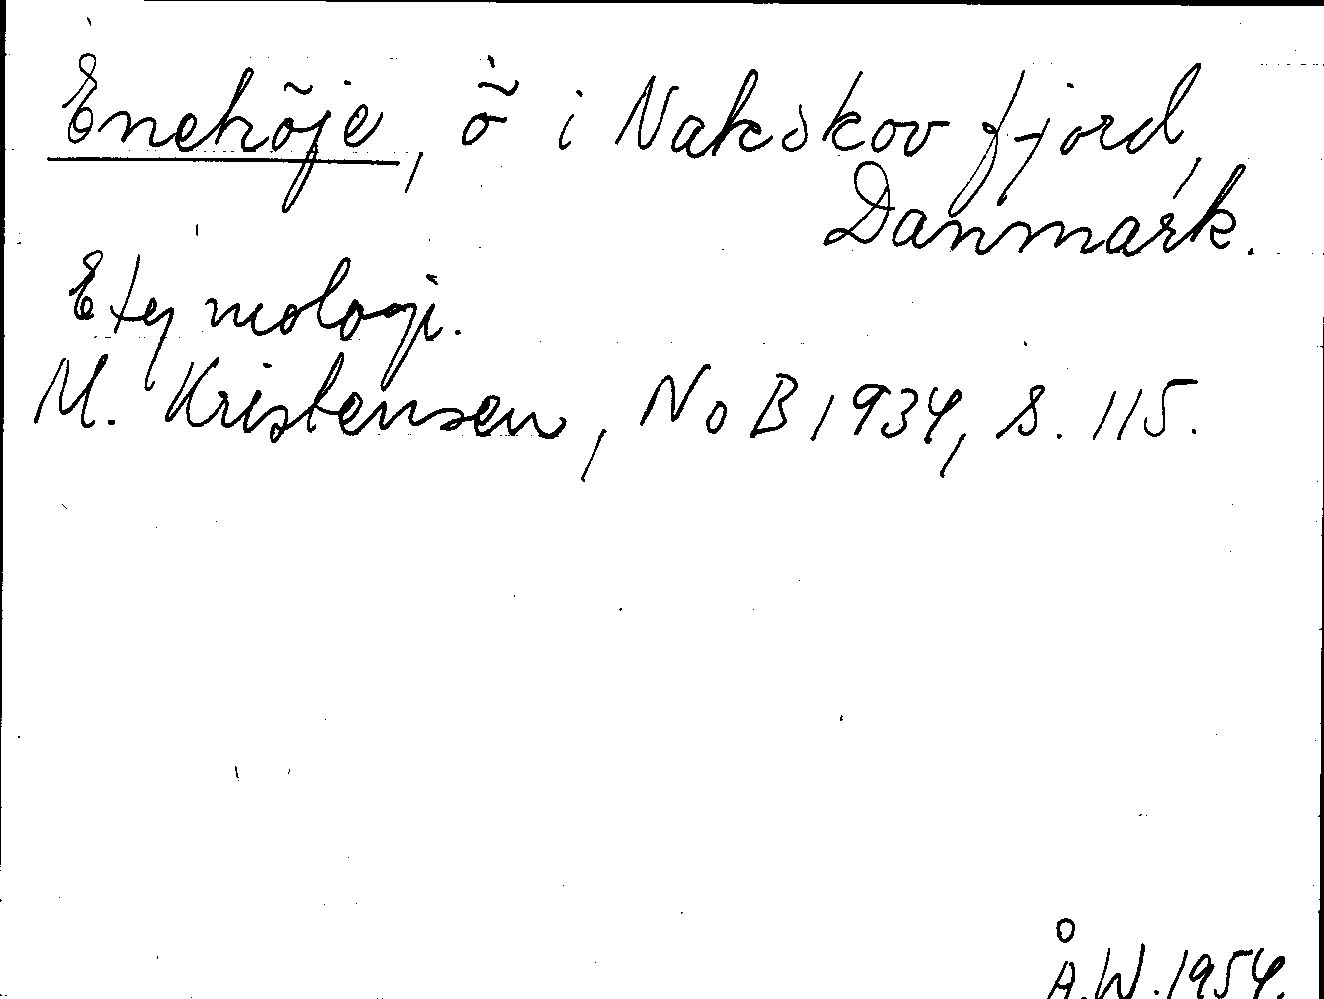 Enehöje, ö i Nakskov fjord,
Danmark.
Etymologi.
M. Kristensen, NoB 1934, s. 115.
Å.W. 1954.